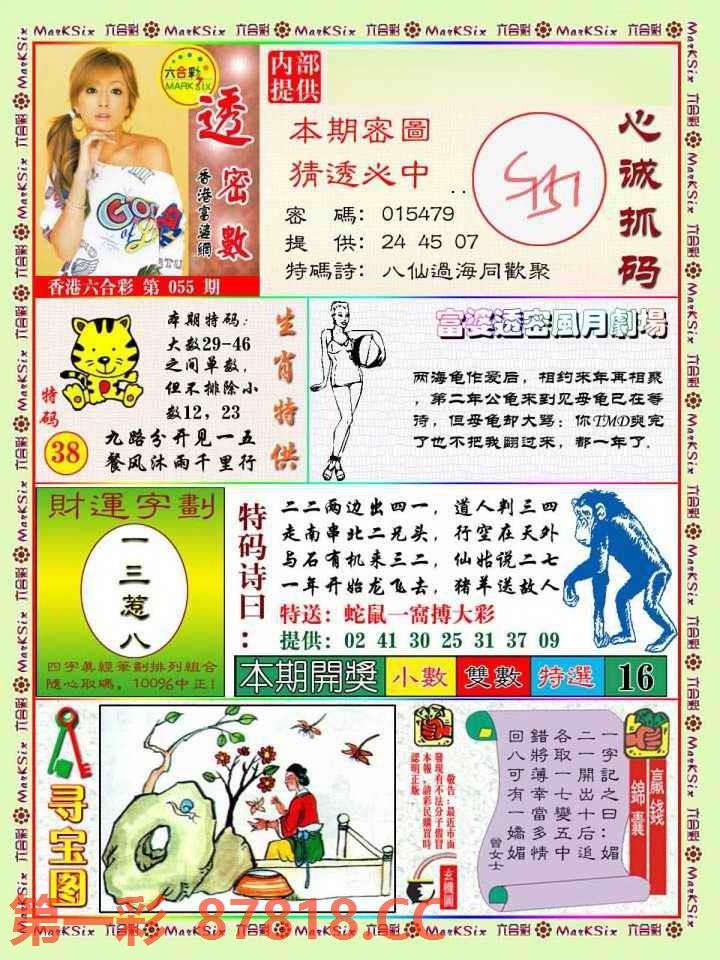 六合彩
MARK SIX
透密數
香港富婆網
香港六合彩 第 055 期
内部
提供
本期密圖
猜透必中
密 碼: 015479
提 供: 24 45 07
特碼詩: 八仙過海同歡聚
心诚抓码
本期特码:
大数29-46
之间单数,
但不排除小
数12, 23
生肖特供
特码
38
九路分开见一五
餐风沐雨千里行
富婆透密風月劇場
两海龟作爱后, 相约来年再相聚
, 第二年公龟来到见母龟已在等
待, 但母龟却大骂: 你TMD爽完
了也不把我翻过来, 都一年了.
財運字劃
一三惹八
四字真經筆劃排列組合
隨心取碼, 100%中正!
特码诗曰:
二二两边出四一, 道人判三四
走南串北二兄头, 行空在天外
与石有机来三二, 仙姑说二七
一年开始龙飞去, 猪羊送故人
特送: 蛇鼠一窩搏大彩
提供: 02 41 30 25 31 37 09
本期開獎 小數 雙數 特選 16
寻宝图
敬告: 最近市面
發現有不法分子假冒
本報, 請彩民購買時
認明正版
玄機圖
贏錢
錦囊
一字記之曰: 媚
二一開出十后追
各取一七變五中
錯將薄幸當多情
回八可有一嬌媚
曾女士
第一彩 87818.CC